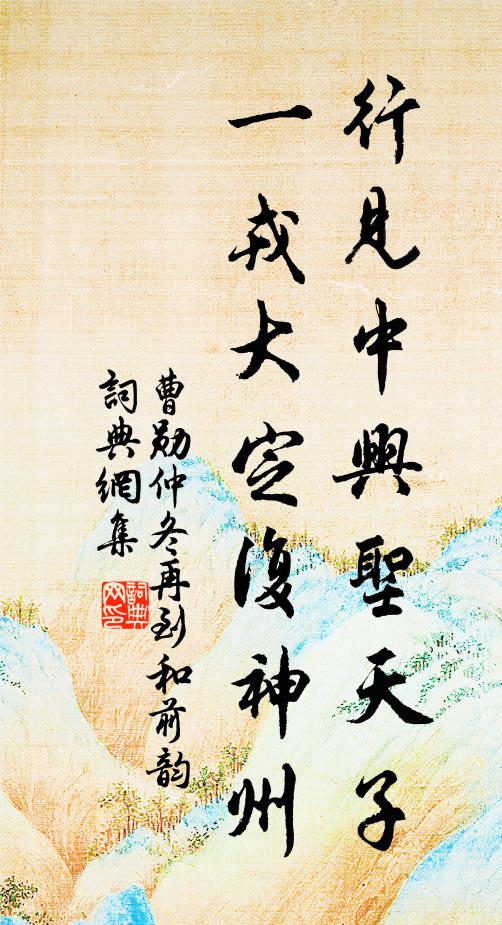 行見中興聖天子
一戎大定復神州
曹勛仲冬再到和前韵
詞典網集
詞典网印